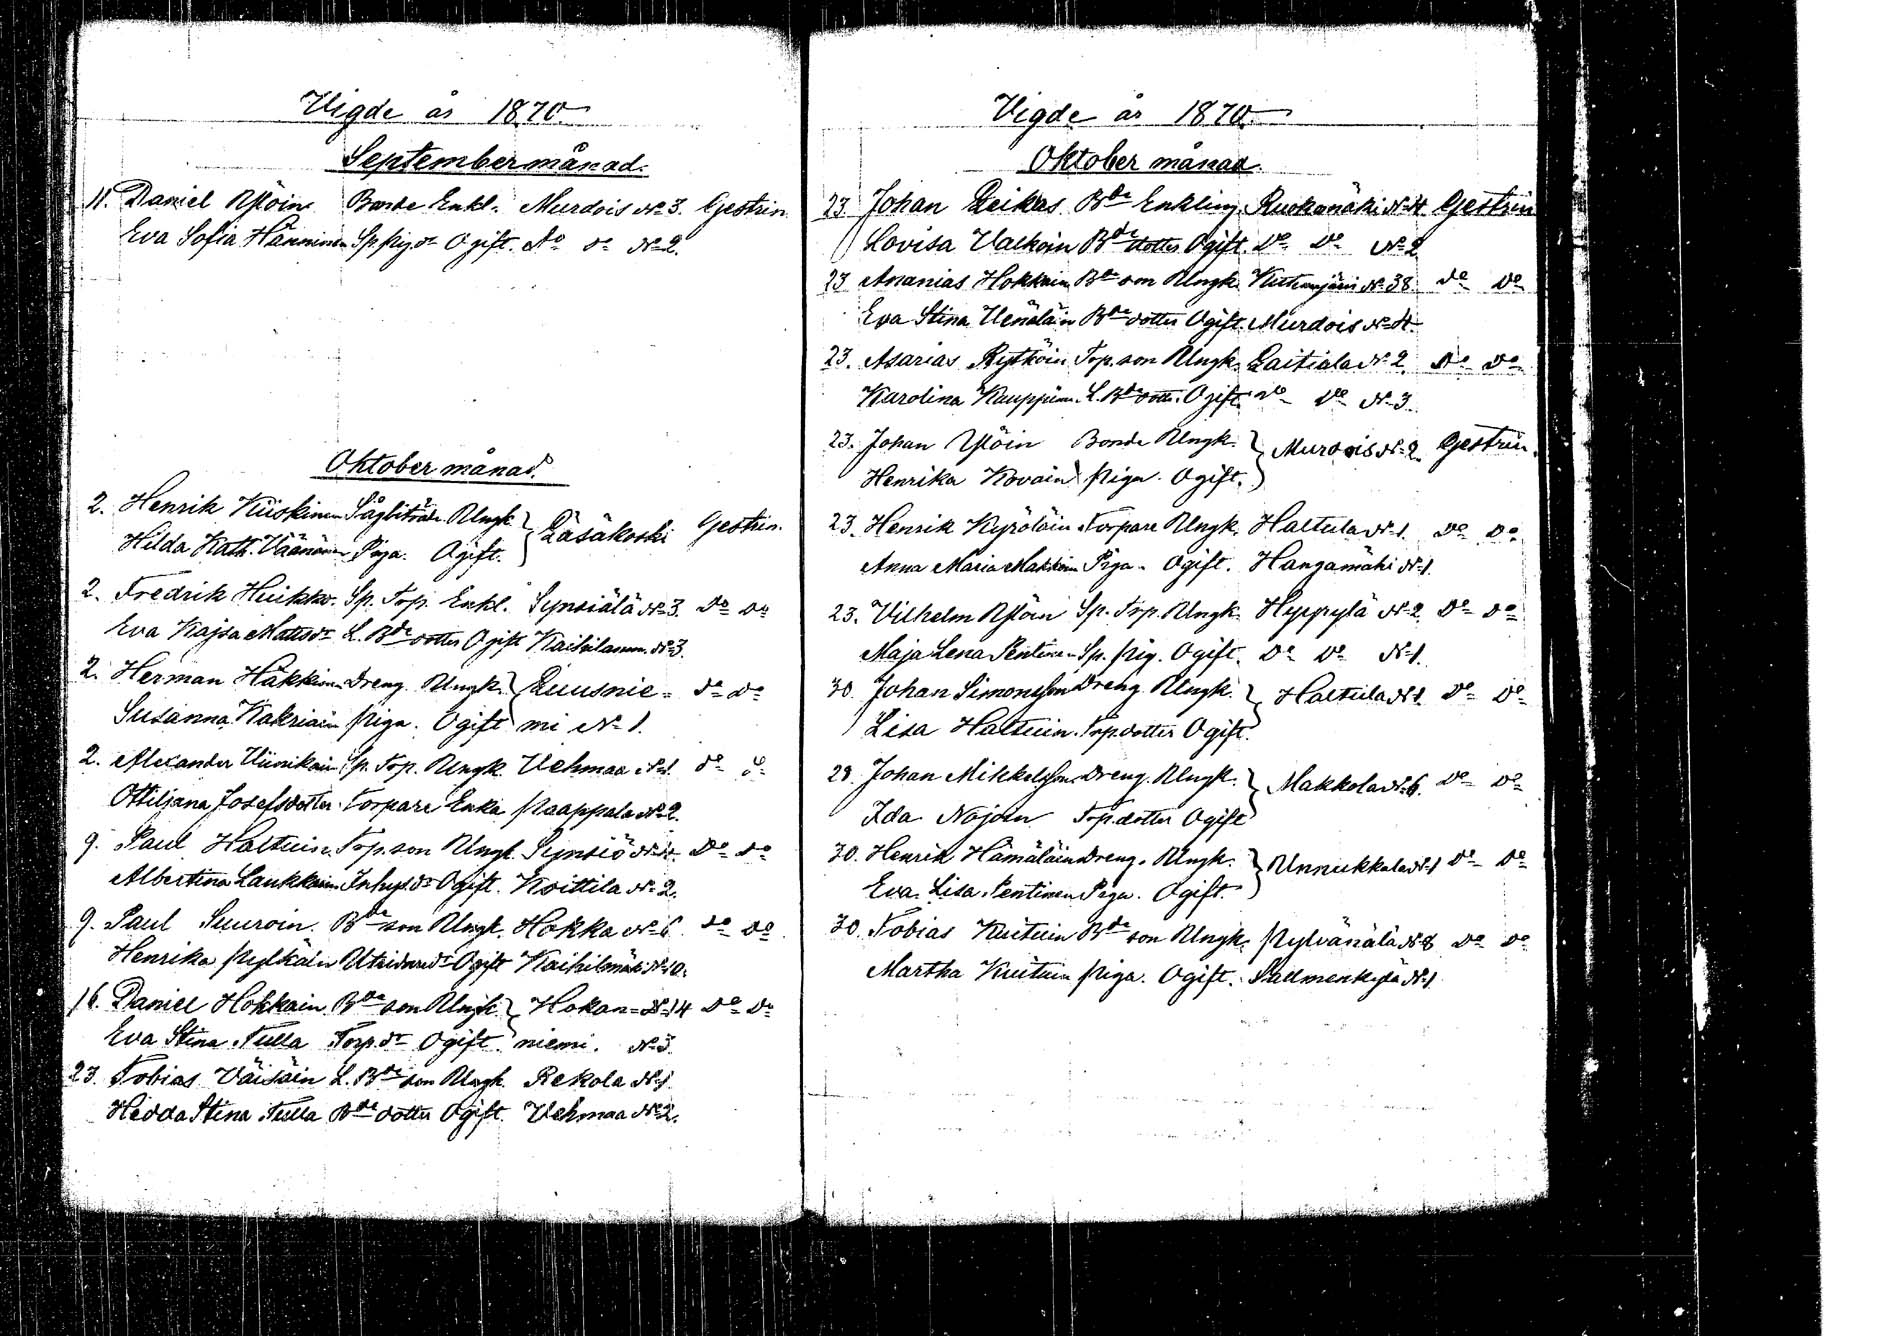 Vigde år 1870
Septembermånad.
11. Daniel Ylöin Bonde Enkl. Murdois No 3. Gestrin
Eva Sofia Hänninen Sp. pig. dr Ogift. Do do No 2.
Oktobermånad.
2. Henrik Kiiskinen Ungk. Läsäkoski Gestrin.
Hilda Kath. Väänänen Piga. Ogift.
2. Fredrik Huikko. Sp. Torp. Enkl. Synsiälä No 3. Do Do
Eva Kajsa Mattsdr L. Bde dotter Ogift No 3.
2. Herman Häkkinen Dreng Ungk. Luusnie=do do
Susanna Kakriain piga. Ogift mi No 1.
2. Alexander Viinikain Sp. Torp. Ungk. Vehmaa No 1. do do
Ottiljana Josefsdotter Torpare Enka Paappala No 2.
9. Paul Haltuin. Torp. son Ungk. Synsiö No 4. Do do
Albertina Laukkain Inhys dr Ogift. Koittila No 2.
9. Paul Suuroin. Bde son Ungk. Hokka No 6 do do
Henrika Pylkäin Ogift Kaihilmäki No 10.
16. Daniel Hokkain Bde son Ungk. Hokan= No 14 Do Do
Eva Stina Tulla Torp. dr Ogift. niemi. No 3.
23. Tobias Väisäin L. Bde son Ungk. Rekola No 1.
Hedda Stina Tulla Bde dotter Ogift. Vehmaa No 2.
Vigde år 1870.
Oktober månad.
23 Johan Leikas Bde Enkling Ruokomäki No 4. Gestrin
Lovisa Valkoin Bde dotter Ogift. Do Do No 2
23 Ananias Hokkain Bde son Ungk. No 38. do Do
Eva Stina Venäläin Bde dotter Ogift. Murdois No 4.
23. Asarias Rytköin Torp. son Ungk. Laitiala No 2. Do Do
Karolina Kauppinen L. Bde dotter Ogift. Do Do No 3.
23. Johan Ylöin Bonde Ungk. Murdois No 2. Gestrin.
Henrika Kovain piga. Ogift.
23. Henrik Kyröläin Torpare Ungk. Haltula No 1. Do Do
Anna Maria Makkoin Piga. Ogift. Hangamäki No 1.
23. Vilhelm Ylöin Sp. Torp. Ungk. Hyppylä No 2 Do Do
Maja Lena Pentinen Sp. pig. Ogift. Do Do No 1.
30. Johan Simonsson Dreng Ungk. Haltula No 1. Do Do
Lisa Haltuin. Torp. dotter Ogift.
29. Johan Mikkelsson Dreng. Ungk. Makkola No 6. Do Do
Ida Nojoin Torp. dotter Ogift
30. Henrik Hämäläin Dreng. Ungk. Unnukkala No 1 Do Do
Eva Lisa Pentinen Piga. Ogift.
30. Tobias Kuituin Bde son Ungk. Pylvänälä No 8 Do Do
Martha Kuituin piga. Ogift. Salmenkylä No 1